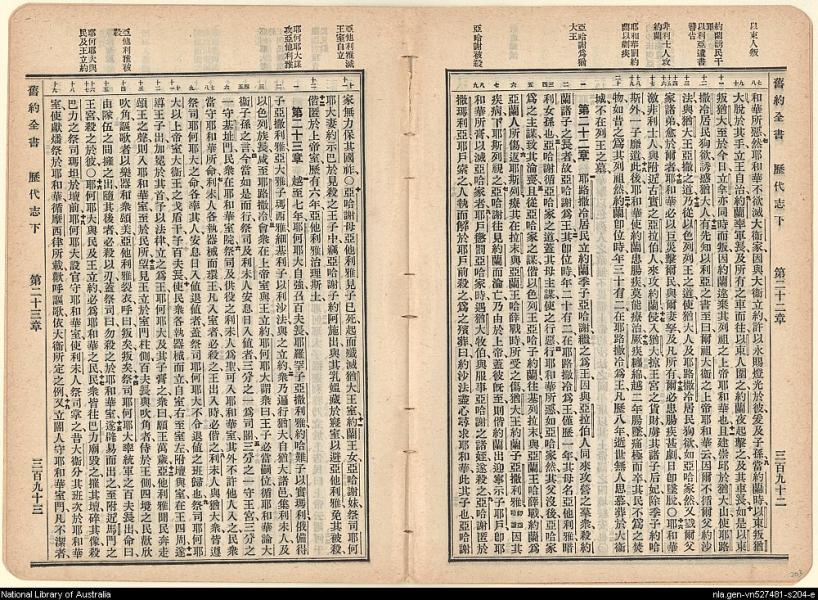 舊約全書 歷代志下 第二十二章 三百九十二
以東人叛
約蘭誘民干罪
以利亞遺書警告
非利士人攻約蘭
耶和華罰約蘭以劇疾
亞哈謝為猶大王
亞哈謝被殺
和華所惡然耶和華不欲滅大衛家因與大衛立約許以永賜燈光於彼爰及子孫當約蘭時以東叛猶
大脫於其手立王自治約蘭率軍長及所有之車而往以東人圍之約蘭夜起擊之及其車長如是以東
叛猶大至於今日立拿亦同時而叛因約蘭遠棄其列祖之上帝耶和華也且建崇邱於猶大山使耶路
撒冷居民狗欲誘惑猶大人有先知以利亞遺書達王曰爾祖大衛之上帝耶和華云因爾不循爾父約沙
法與猶大王亞撒之道乃從以色列列王之道使猶大人及耶路撒冷居民狗欲如亞哈家然又戮爾父
家諸弟愈於爾者耶和華必以巨災擊爾民與爾妻孥及凡所有爾必患腸疾甚劇日卽墜脫〇耶和華
激非利士人與附近古實之亞拉伯人來攻約蘭侵入猶大掠王宮之貨財虜其諸子后妃除季子約哈
斯外一子靡遺此後耶和華使約蘭患腸疾莫能療治厥疾纏綿越二年腸墜痛極而卒其民不為之焚
物如昔之為其列祖然約蘭卽位時年三十有二在耶路撒冷為王凡歷八年逝世無人思慕葬於大衛
城不在列王之墓
第二十二章 耶路撒冷居民立約蘭季子亞哈謝繼之為王因與亞拉伯人同來攻營之羣衆殺約
蘭諸子之長者故亞哈謝為王其卽位時年二十有二在耶路撒冷為王僅歷一年其母名亞他利雅暗
利女孫也亞哈謝循亞哈家之道蓋其母主謀使之行惡行耶和華所惡如亞哈家然其父沒後亞哈家
為之主謀致其淪喪且從亞哈家之謀偕以色列王亞哈子約蘭往基列拉末與亞蘭王哈薛戰約蘭為
亞蘭人所傷返耶斯列療其在拉末與亞蘭王哈薛戰時所受之傷猶大王約蘭子亞撒利雅因其
疾病下耶斯列視之亞哈謝往見約蘭而淪亡乃由於上帝蓋彼旣至則偕約蘭出迎寧示子耶戶卽耶
和華所膏以滅亞哈家者耶戶懲罰亞哈家時遇猶大牧伯與服事亞哈謝之諸姪遂殺之亞哈謝匿於
撒瑪利亞耶戶索之人執而解於耶戶前殺之為之殯葬曰約沙法盡心尋求耶和華此其子也亞哈謝
舊約全書 歷代志下 第二十三章 三百九十三
亞他利雅滅王室自立
耶何耶大謀攻亞他利雅
亞他利雅被殺
耶何耶大與民及王立約
家無力保其國祚〇亞哈謝母亞他利雅見子已死起而殲滅猶大王室約蘭王女亞哈謝妹祭司耶何
耶大妻約示巴於見殺之王子中竊亞哈謝子約阿施出與其乳媼藏於寢室以避亞他利雅免其被殺
偕匿於上帝室歷有六年亞他利雅治理斯土
第二十三章 越至七年耶何耶大自強召百夫長耶羅罕子亞撒利雅約哈難子以實瑪利俄備得
子亞撒利雅亞大雅子瑪西雅細基利子以利沙法與之立約衆乃遍行猶大自猶大諸邑集利未人及
以色列族長咸至耶路撒冷會衆在上帝室與王立約耶何耶大謂衆曰王子必當嗣位循耶和華論大
衛子孫之言今當如是而行祭司及利未人安息日入値者三分之一為司閽三分之一守王宮三分之
一守基址門民衆在耶和華室院祭司及供役之利未人為聖可入耶和華室其外不許他人入之民衆
當守耶和華所命利未人各執器械而環王凡入室者必殺之王出入時必偕之利未人與猶大衆皆遵
祭司耶何耶大之命各率其人安息日入値退値者蓋祭司耶何耶大不令退値之班歸也祭司耶何耶
大以上帝室大衛王之戈盾干予百夫長使民衆各執器械而立自室右至室左附壇與室在王四周遂
導王子出加冕於其首予以法律立之為王耶何耶大及其子膏之衆曰願王萬歲亞他利雅聞民奔走
頌王之聲則入耶和華室至於民所望見王立於室門柱側百夫長與吹角者侍於王側四境之民歡欣
吹角謳歌者以樂器和衆頌美亞他利雅裂衣呼曰叛矣叛矣祭司耶何耶大率統軍之百夫長出命曰
由隊伍之間攜之出隨其後者必殺以刃蓋祭司曰勿殺之於耶和華室遂辟易而出之至附近馬門之
王宮殺之於彼〇耶何耶大與民及王立約必為耶和華之民民衆皆往巴力廟毀之摧其壇碎其像殺
巴力之祭司瑪坦於壇前耶何耶大設官守耶和華室使利未人祭司掌之昔大衛分其班次於耶和華
室使獻燔祭於耶和華循摩西律所載歡呼謳歌依大衛所定之例又立閽人守耶和華室門凡不潔者
National Library of Australia
nla.gen-vn527481-s204-e